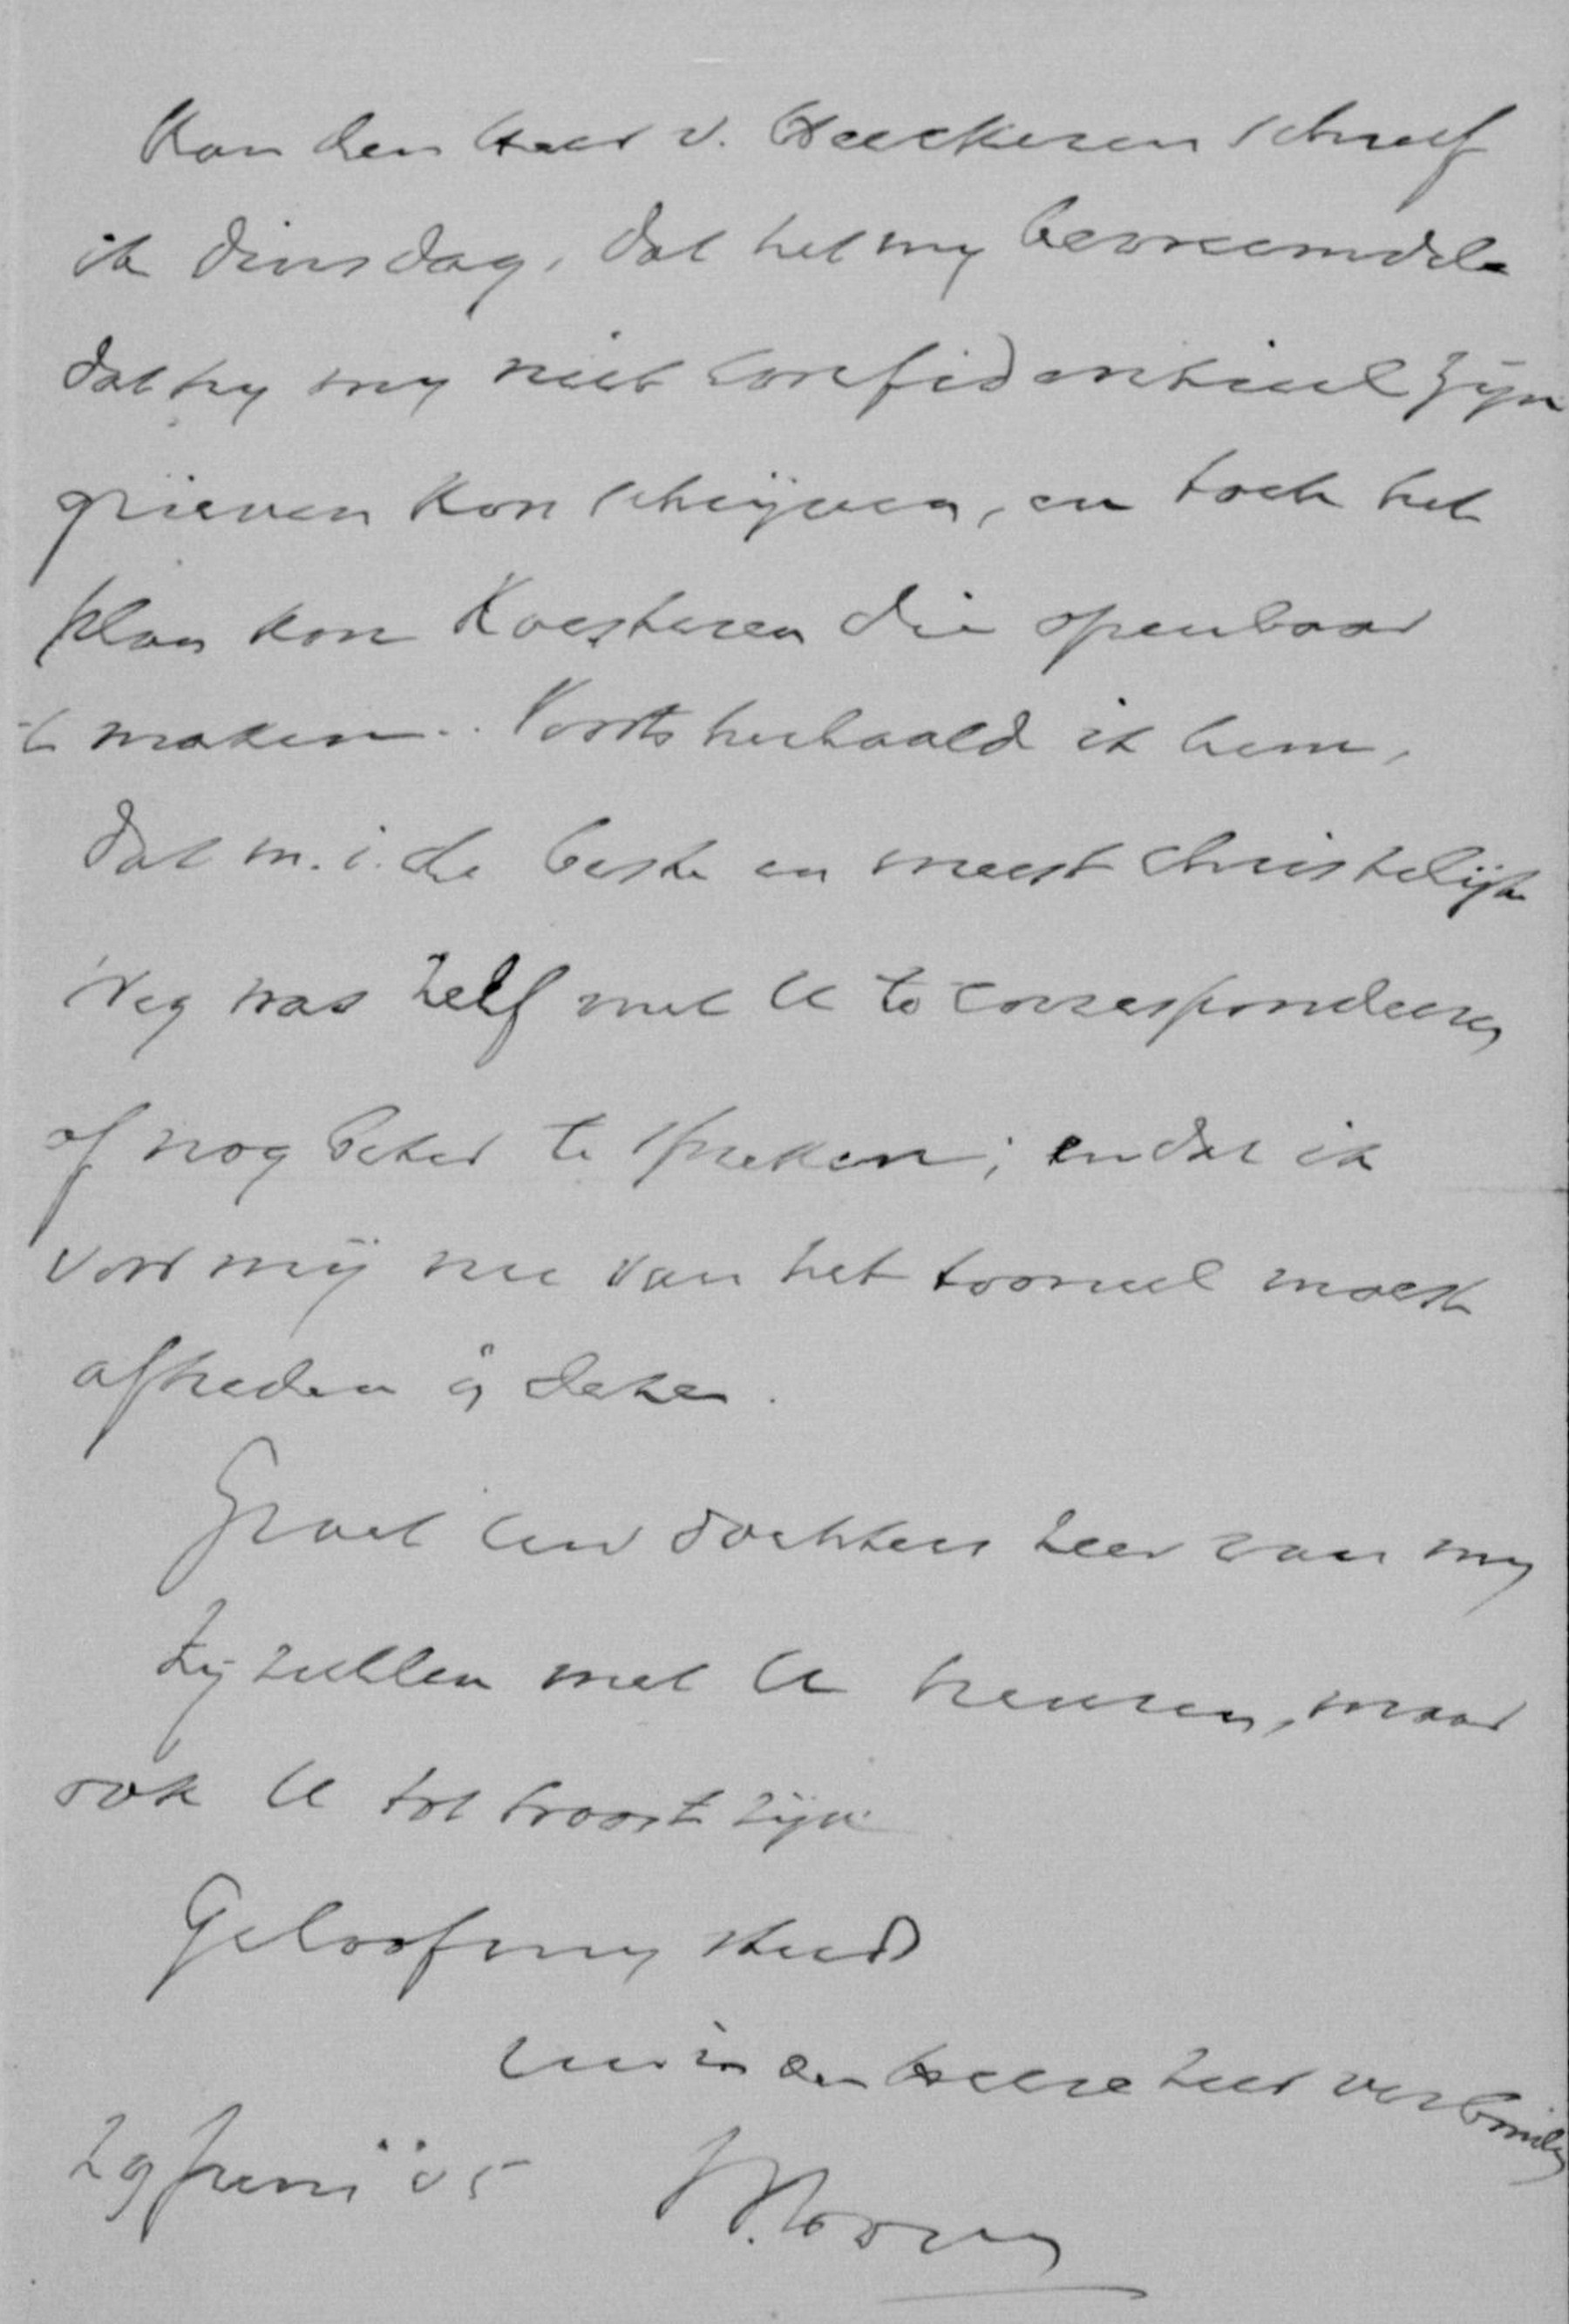 Aan den Heer v. Heeckeren schreef
ik dinsdag, dat het my bevreemdde
dat hy my niet confidentieel zijn
grieven kon schrijven, en toch het
plan kon koesteren die openbaar
te maken. Voorts herhaald ik hem,
dat m.i. de beste en meest christelijke
weg was zelf met U te correspondeeren
of nog beter te spreken; en dat ik
voor mij nu van het tooneel moest
aftreden in deze.
Groet uw dochters zeer van my
zy zullen met U treuren, maar
ook U tot troost zijn
Geloof my steeds
uw in den Heere zeer verbonden
29 Juni 05